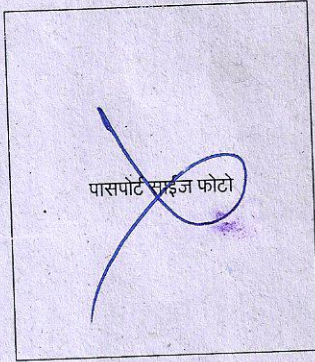 पासपोर्ट साईज फोटो